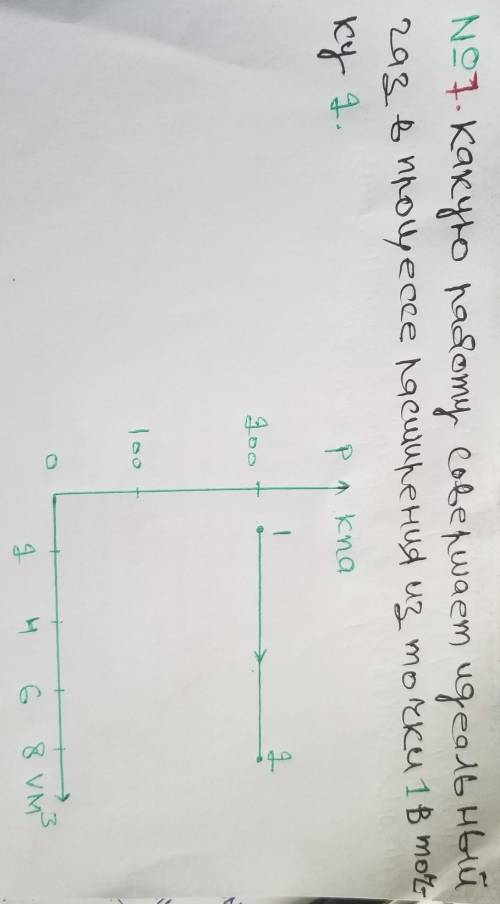 №7. Какую работу совершает идеальный
газ в процессе расширения из точки 1 в точ-
ку 2.
P кПа
200
1
2
100
0
2 4 6 8 VM³